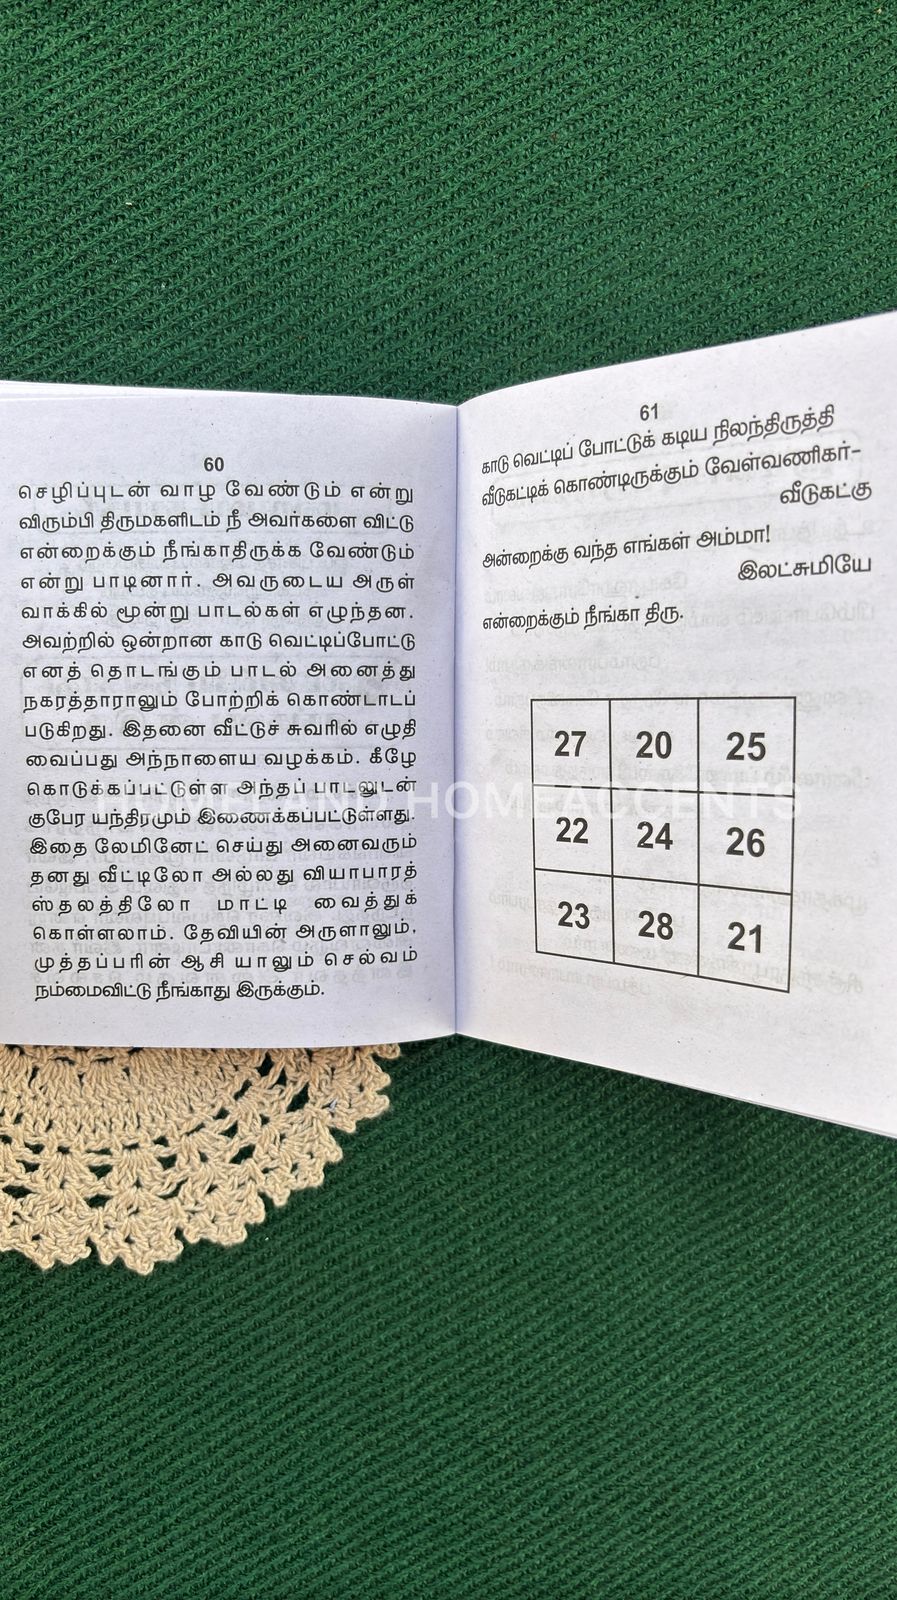 60
செழிப்புடன் வாழ வேண்டும் என்று
விரும்பி திருமகளிடம் நீ அவர்களை விட்டு
என்றைக்கும் நீங்காதிருக்க வேண்டும்
என்று பாடினார். அவருடைய அருள்
வாக்கில் மூன்று பாடல்கள் எழுந்தன.
அவற்றில் ஒன்றான காடு வெட்டிப்போட்டு
எனத் தொடங்கும் பாடல் அனைத்து
நகரத்தாராலும் போற்றிக் கொண்டாடப்
படுகிறது. இதனை வீட்டுச் சுவரில் எழுதி
வைப்பது அந்நாளைய வழக்கம். கீழே
கொடுக்கப்பட்டுள்ள அந்தப் பாடலுடன்
குபேர யந்திரமும் இணைக்கப்பட்டுள்ளது.
இதை லேமினேட் செய்து அனைவரும்
தனது வீட்டிலோ அல்லது வியாபாரத்
ஸ்தலத்திலோ மாட்டி வைத்துக்
கொள்ளலாம். தேவியின் அருளாலும்,
முத்தப்பரின் ஆசி யாலும் செல்வம்
நம்மைவிட்டு நீங்காது இருக்கும்.
61
காடு வெட்டிப் போட்டுக் கடிய நிலந்திருத்தி
வீடுகட்டிக் கொண்டிருக்கும் வேள்வணிகர்-
வீடுகட்கு
அன்றைக்கு வந்த எங்கள் அம்மா!
இலட்சுமியே
என்றைக்கும் நீங்கா திரு.
27 20 25
22 24 26
23 28 21
HOMELAND HOMEACCENTS